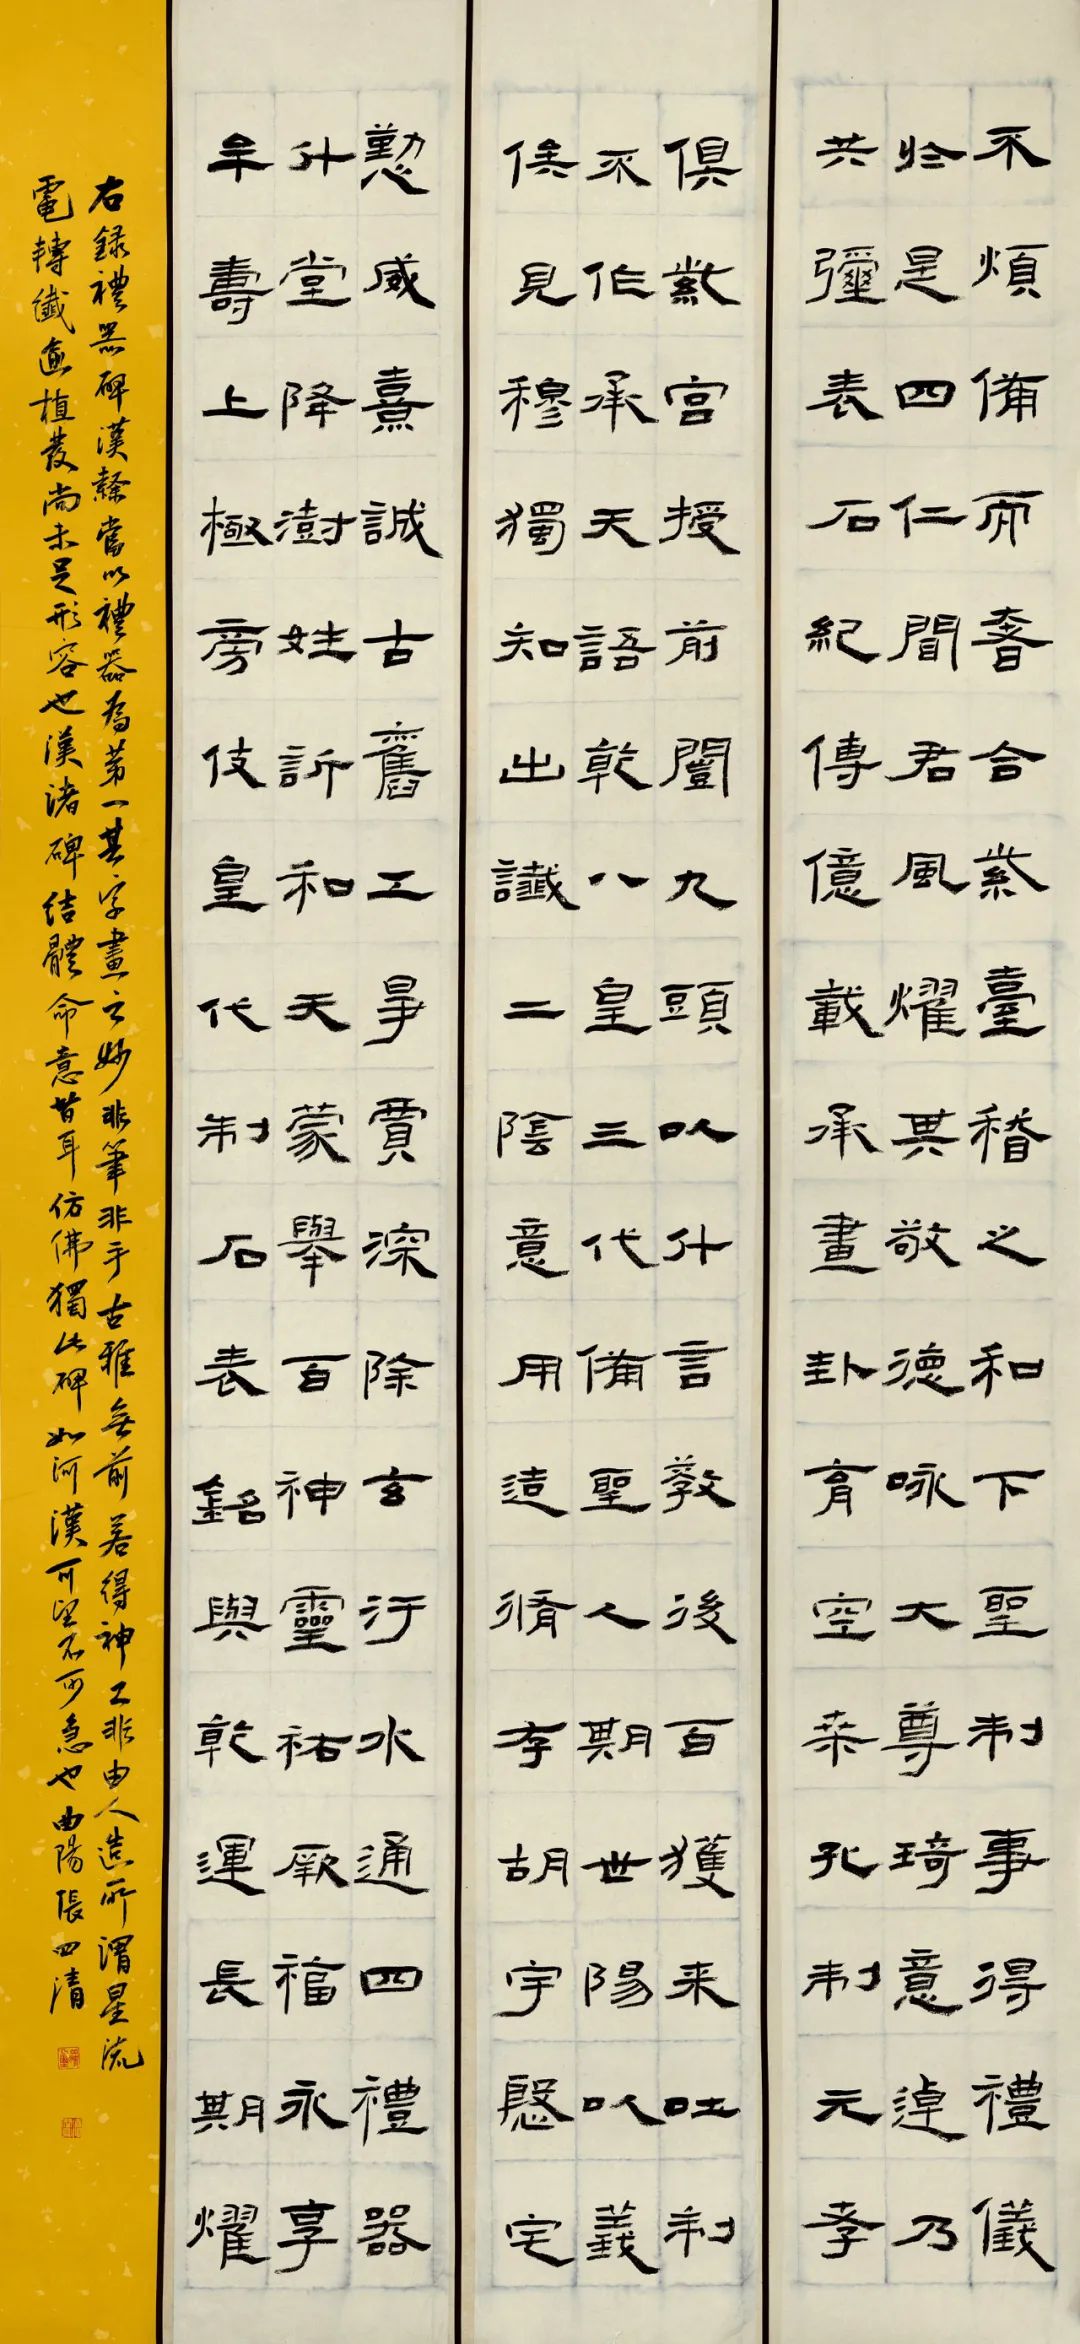 不煩備而奢合紫臺稽之和下聖制事得禮儀
於是四仁聞君風燿其敬德咏大尊琦意逴乃
共彌表石紀傳億載承畫卦育空桒孔制元孝
俱紫宮授前闓九頭以什言敎後百獲来吐制
不作承天語乾八皇三代備聖人期世陽以義
侯見穆獨知出讖二陰意用造脩孝胡宇慇宅
懃威熹誠古舊工爭賈深除玄汙水通四禮器
升堂降澍姓訢和天蒙舉百神靈祐厥福永享
牟壽上極旁伎皇代制石表銘與乾運長期燿
右錄禮器碑漢隸當以禮器為第一其字畫之妙非筆非手古雅無前若得神工非由人造所謂星流
電轉纖逾植髮尚未足形容也漢諸碑結體命意皆耳仿佛獨此碑如河漢可望不可急也曲陽張四清